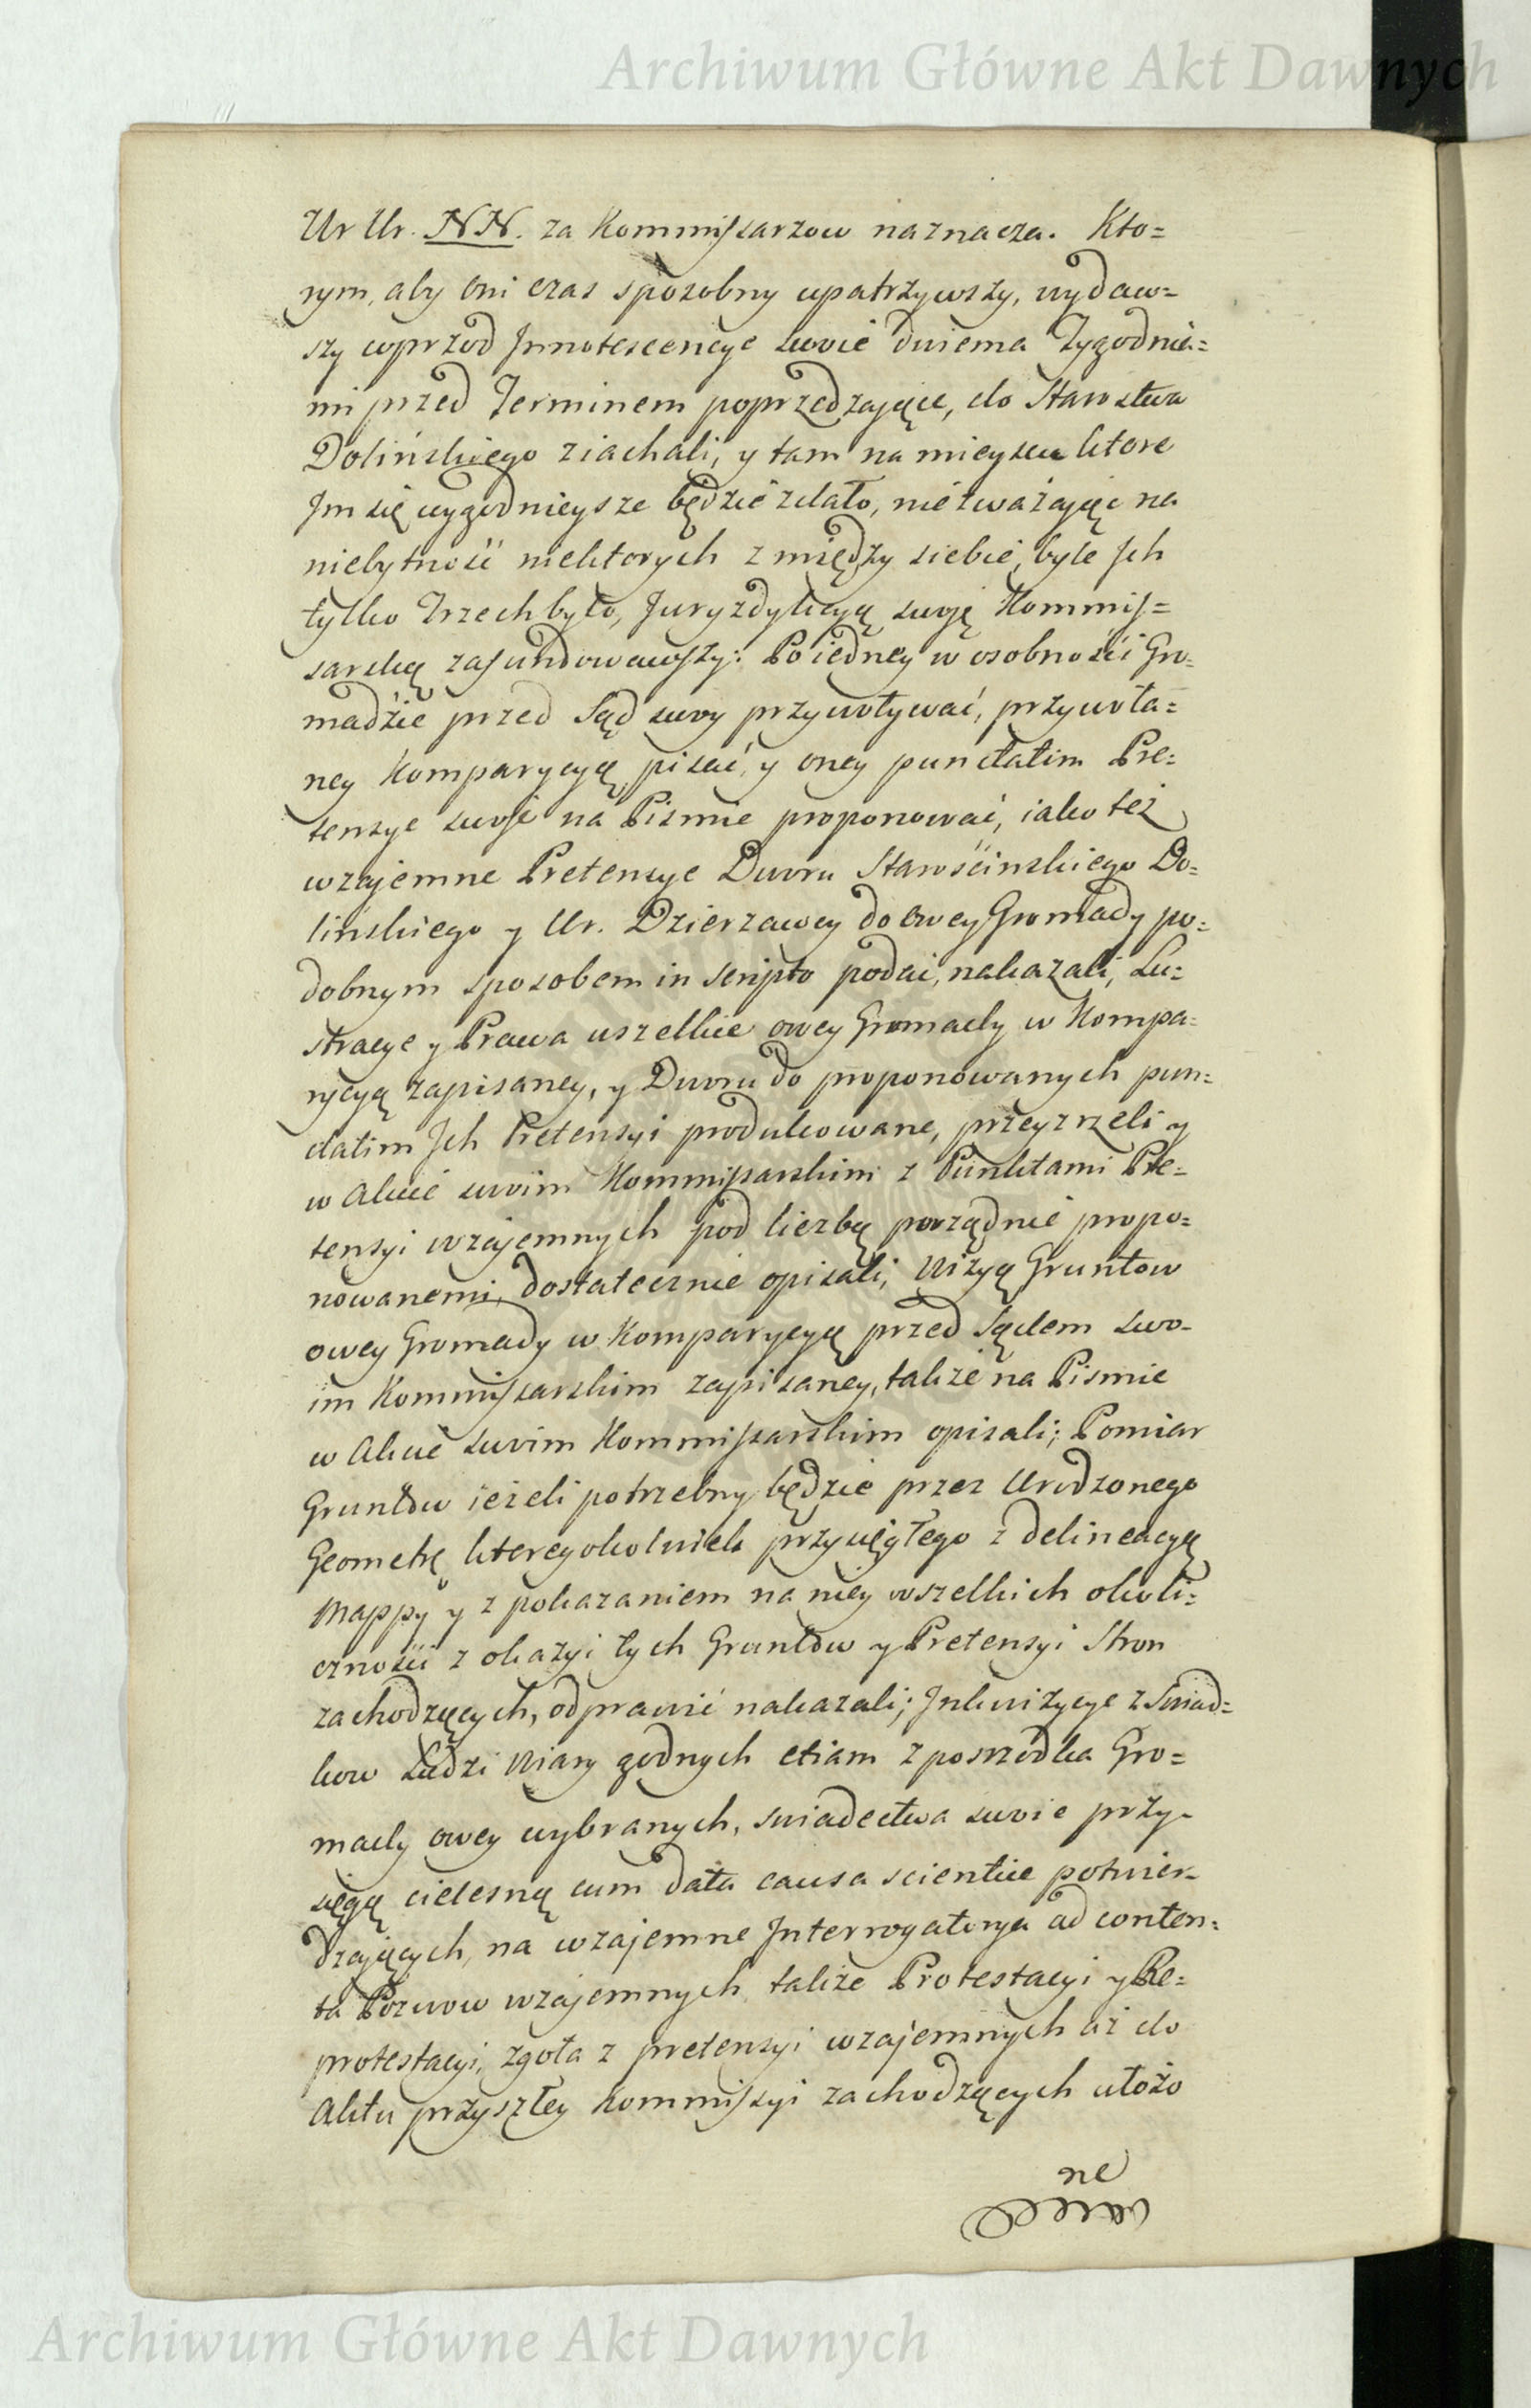 Archiwum Główne Akt Dawnych
Ur Ur. NN. za Kommissarzow naznacza. Kto=
rym, aby oni czas sposobny upatrzywszy, wydaw=
szy wprzod Jnnotescencye swoie dwiema Tygodnia=
mi przed Terminem poprzedzaiące, do Starostwa
Dolińskiego ziachali, y tam na mieyscu ktore
Jm się wygodnieysze będzie zdało, nie zważaiąc na
niebytność niektorych z między siebie, byle Jch
tylko Trzech było, Juryzdykcyą swoię Kommis=
sarską zafundowawszy: Po iedney w osobności Gro=
madzie przed Sąd swoy przywoływać, przywoła=
ney Komparycyą pisać, y oney punctatim Pre=
tensye swoje na Pismie proponować, iako też
wzajemne Pretensye Dworu Starościnskiego Do=
lińskiego y Ur. Dzierzawcy do owey Gromady po=
dobnym sposobem in scripto podać, nakazali, Lu=
stracye y Prawa wszelkie owey Gromady w Kompa=
rycyą zapisaney, y Dworu do proponowanych pun=
ctatim Jch Pretensyi produkowane, przeyrzeli y
w Akcie swoim Kommissarskim z Punktami Pre=
tensyi wzajemnych pod liczbą porządnie propo=
nowanemi, dostatecznie opisali; Wizyą Gruntow
owey Gromady w Komparycyą przed Sądem swo=
im Kommissarskim zapisaney, takze na Pismie
w Akcie swoim Kommissarskim opisali; Pomiar
Gruntow ieżeli potrzebny będzie przez Urodzonego
Geometrę ktoregokolwiek przysięgłego z delineacyą
Mappy y z pokazaniem na niey wszelkich okoli=
czności z okazyi tych Gruntow y Pretensyi Stron
zachodzących, odprawić nakazali; Jnkwizycye z Swiad=
kow Ludzi Wiary godnych etiam z posrzodka Gro=
mady owey wybranych, swiadectwa swoie przy=
sięgą cielesną cum data causa scientiae potwier=
dzaiących, na wzajemne Jnterrogatorya ad conten=
ta Pozwow wzajemnych takze Protestacyi y Re=
protestacyi, zgoła z pretensyi wzajemnych aż do
Aktu przyszłey Kommissyi zachodzących ułożo
ne
Archiwum Główne Akt Dawnych